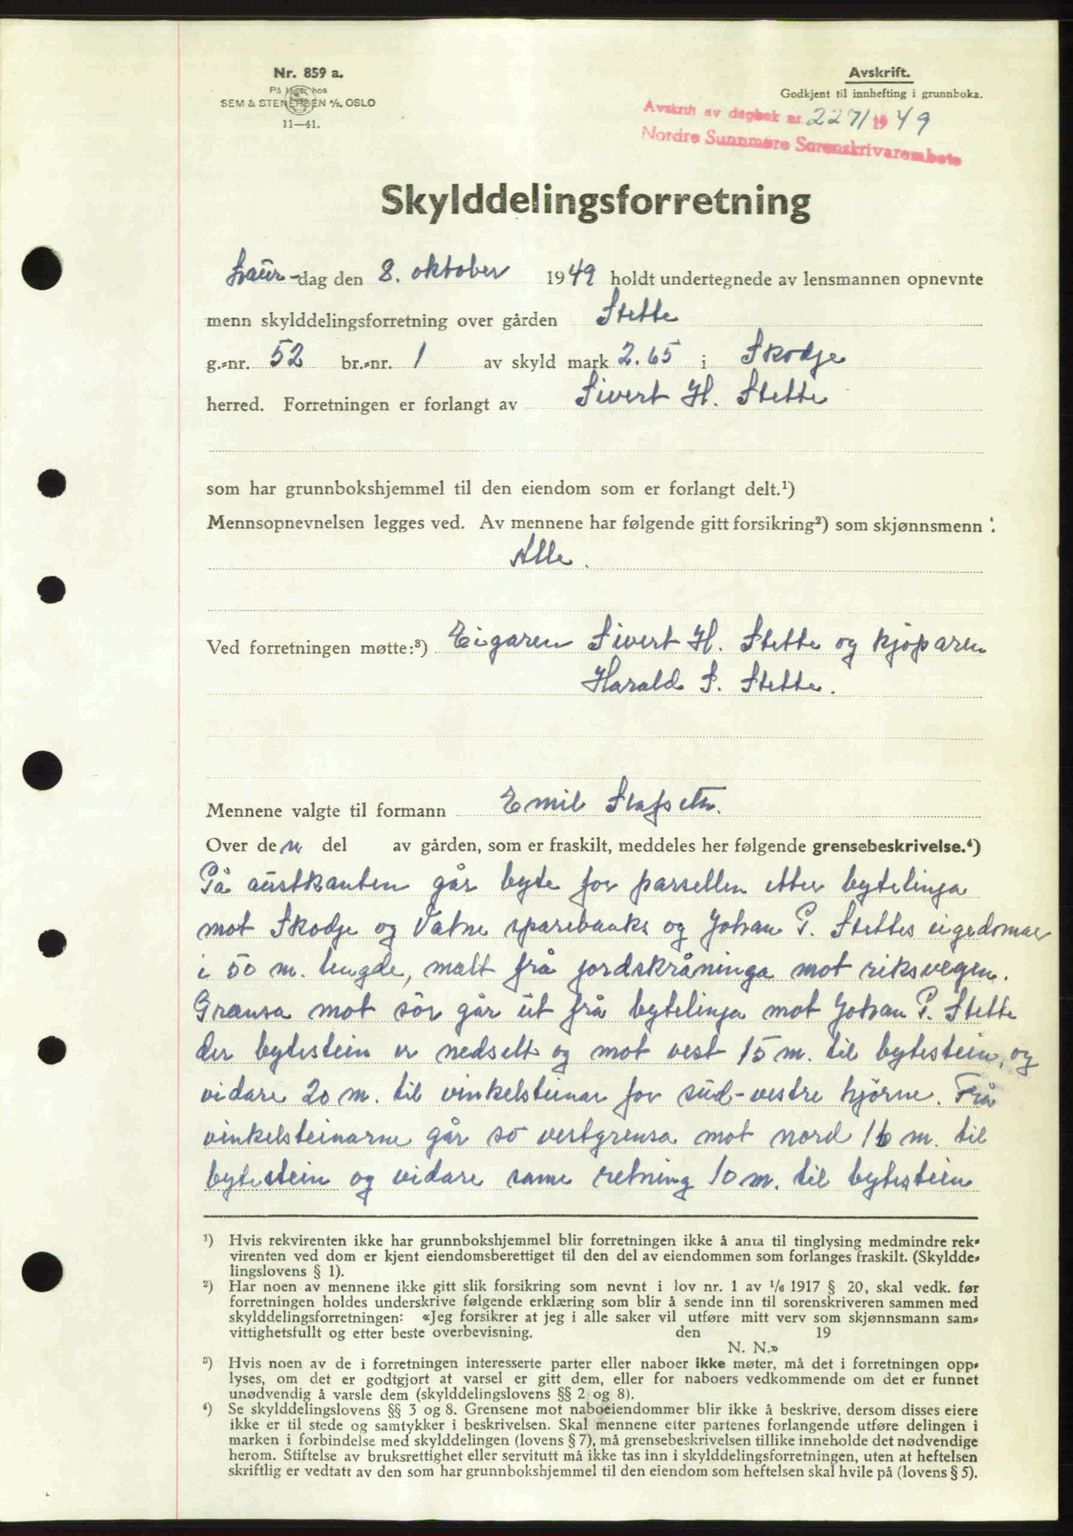 Nr. 859 a.
På lager hos
SEM & STENERSEN A/S, OSLO
11—41.
Avskrift.
Godkjent til innhefting i grunnboka.
Avskrift av dagbok nr. 2271 1949
Nordre Sunnmøre Sorenskrivarembete
Skylddelingsforretning
Laur-dag den 8. oktober 1949 holdt undertegnede av lensmannen opnevnte
menn skylddelingsforretning over gården Stette
g.-nr. 52 br.-nr. 1 av skyld mark 2.65 i Skodje
herred. Forretningen er forlangt av Sivert H. Stette
som har grunnbokshjemmel til den eiendom som er forlangt delt.¹)
Mennsopnevnelsen legges ved. Av mennene har følgende gitt forsikring²) som skjønnsmenn :
Alle.
Ved forretningen møtte:³) Eigaren Sivert H. Stette og kjøparen
Harald S. Stette.
Mennene valgte til formann Emil Slafseth.
Over den del av gården, som er fraskilt, meddeles her følgende grensebeskrivelse.⁴)
På austkanten går byte for parsellen etter bytelinja
mot Skodje og Vatne sparebanks og Johan P. Stettes eigedomar
i 50 m. lengde, målt frå jordskråninga mot riksvegen.
Grensa mot sör går ut frå bytelinja mot Johan P. Stette
der bytestein er nedsett og mot vest 15 m. til bytestein, og
vidare 20 m. til vinkelsteinar for süd-vestre hjörne. Frå
vinkelsteinarne går so vestgrensa mot nord 16 m. til
bytestein og vidare same retning 10 m. til bytestein
¹) Hvis rekvirenten ikke har grunnbokshjemmel blir forretningen ikke å anta til tinglysing medmindre rek-
virenten ved dom er kjent eiendomsberettiget til den del av eiendommen som forlanges fraskilt. (Skyldde-
lingslovens § 1).
²) Har noen av mennene ikke gitt slik forsikring som nevnt i lov nr. 1 av 1/6 1917 § 20, skal vedk. før
forretningen holdes underskrive følgende erklæring som blir å sende inn til sorenskriveren sammen med
skylddelingsforretningen: «Jeg forsikrer at jeg i alle saker vil utføre mitt verv som skjønnsmann sam-
vittighetsfullt og etter beste overbevisning. den 19
N. N.»
³) Hvis noen av de i forretningen interesserte parter eller naboer ikke møter, må det i forretningen opp-
lyses, om det er godtgjort at varsel er gitt dem, eller for naboers vedkommende om det er funnet
unødvendig å varsle dem (skylddelingslovens §§ 2 og 8).
⁴) Se skylddelingslovens §§ 3 og 8. Grensene mot naboeiendommer blir ikke å beskrive, dersom disses eiere
ikke er til stede og samtykker i beskrivelsen. Skal mennene etter partenes forlangende utføre delingen i
marken i forbindelse med skylddelingen (lovens § 7), må grensebeskrivelsen tillike inneholde det nødvendige
herom. Stiftelse av bruksrettighet eller servitutt må ikke tas inn i skylddelingsforretningen, uten at heftelsen
skriftlig er vedtatt av den som har grunnbokshjemmel til den eiendom som heftelsen skal hvile på (lovens § 5).